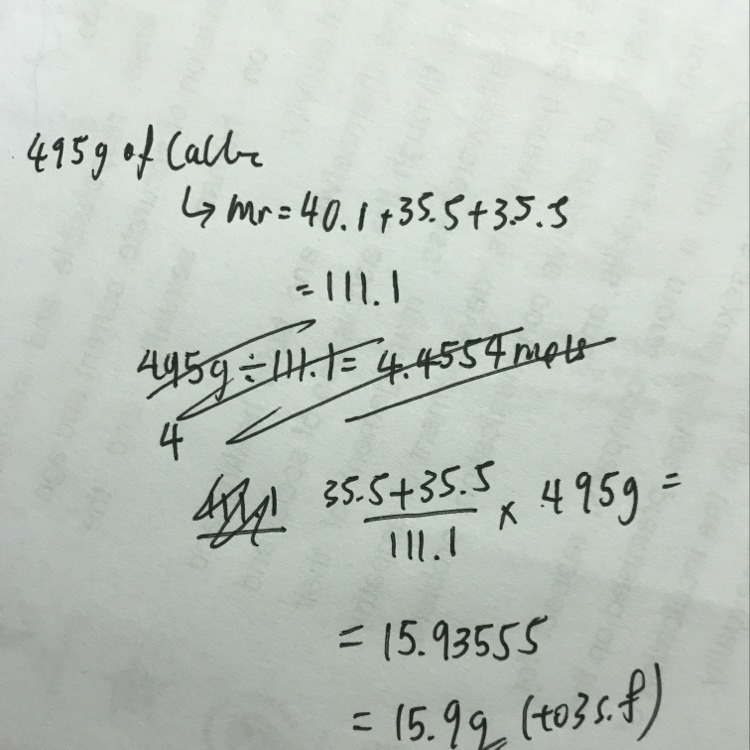 495g of CaCl₂
↳ mr = 40.1 + 35.5 + 35.5
= 111.1
495g ÷ 111.1 = 4.4554 mols
4
35.5 + 35.5 / 111.1 × 495g =
= 15.93555
= 15.9g (to 3 s.f)